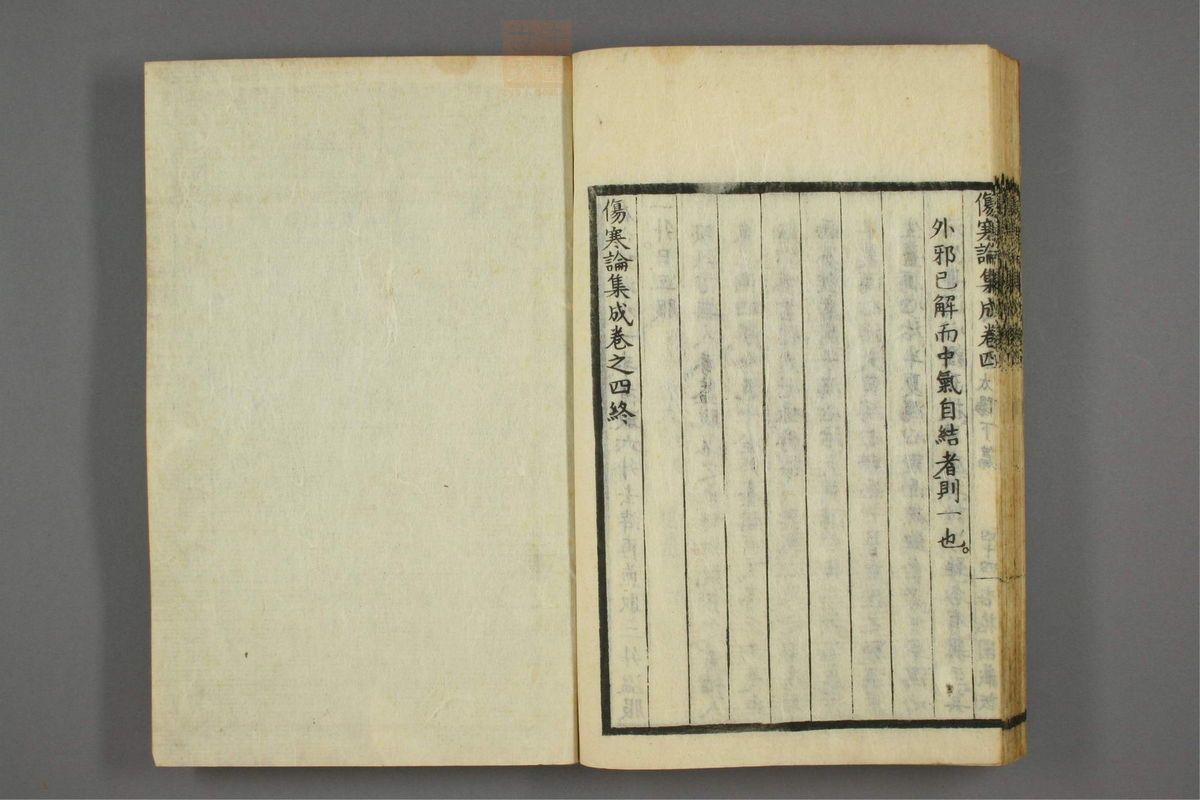 傷寒論集成卷四
太陽下篇
四十四
外邪已解而中氣自結者則一也。
傷寒論集成卷之四終